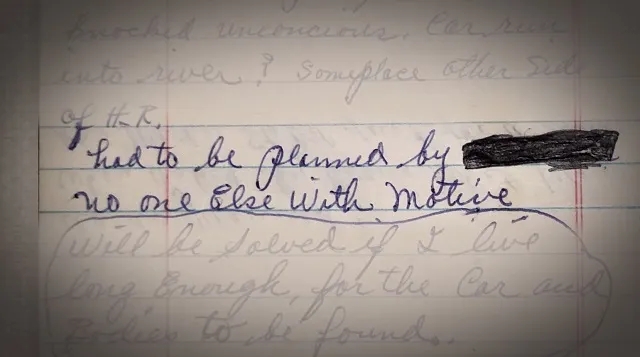 Knocked unconcious. Car run
into river? Someplace Other Side
of H.R.
had to be planned by
no one Else With Motive
Will be Solved if I live
long Enough, for the Car and
Bodies to be found.